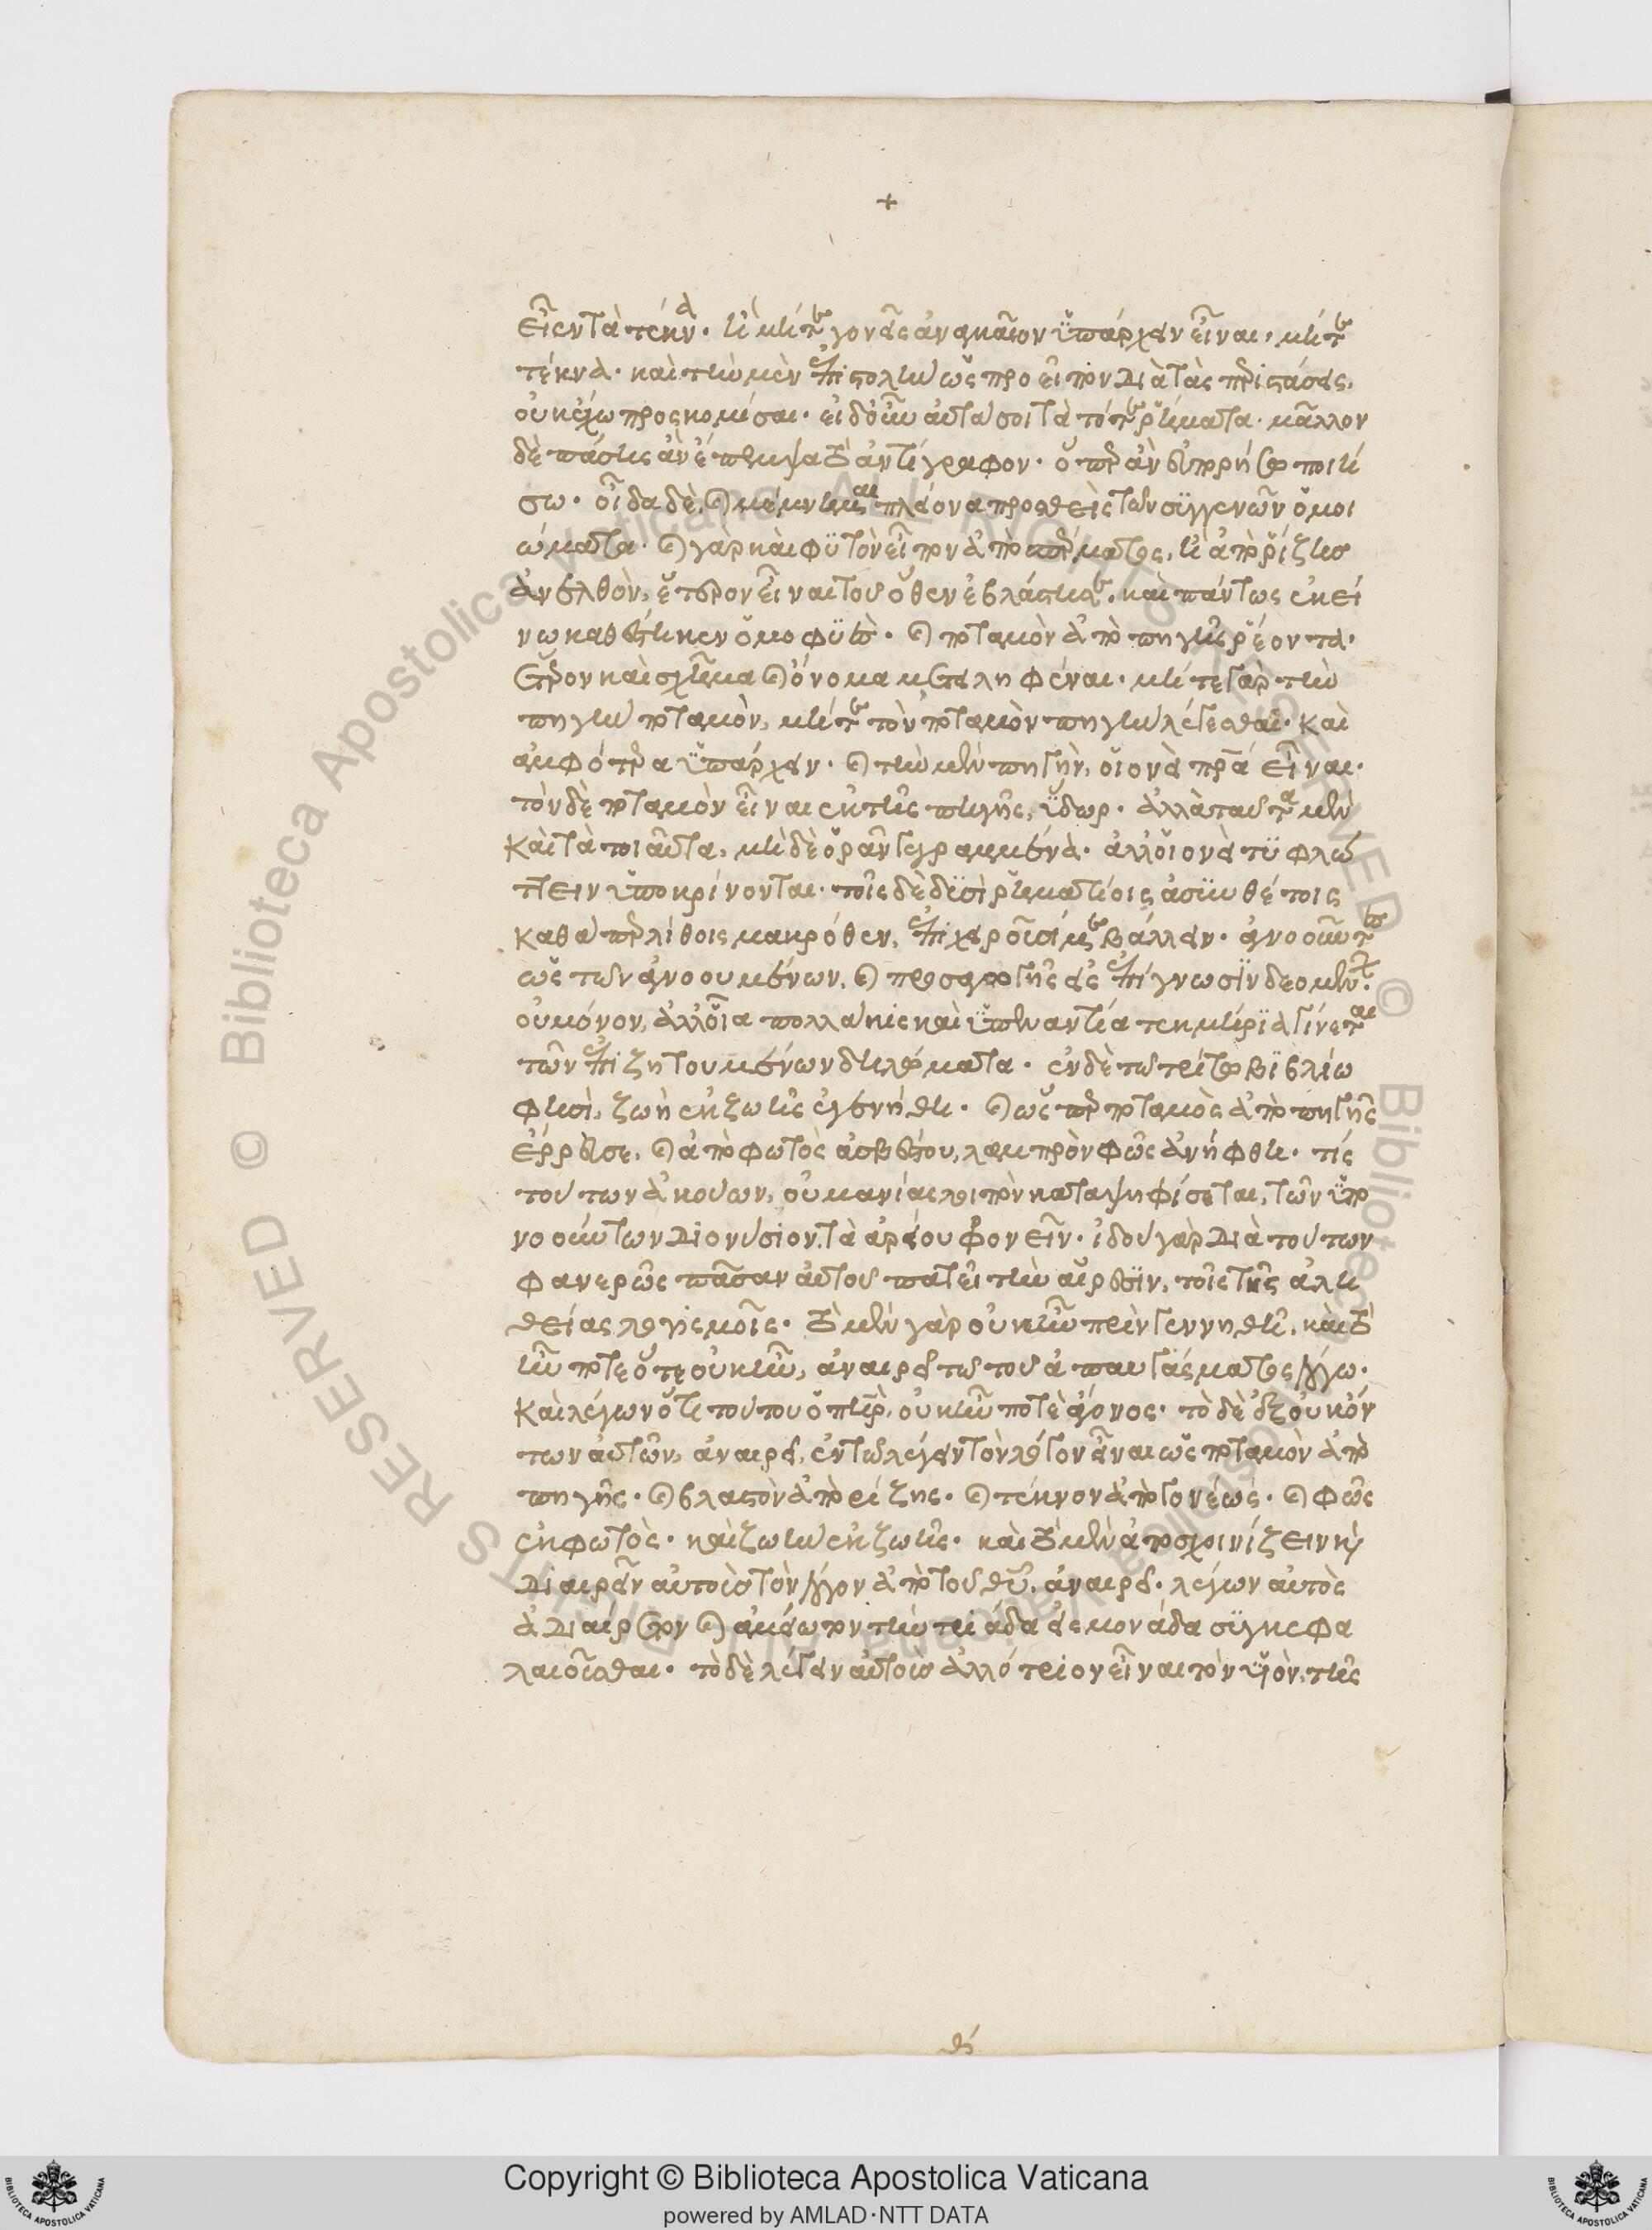 +
εἶεν τὰ τέκνα. ἢ μήτε γονεῖς ἀναγκαῖον ὑπάρχειν εἶναι, μήτε
τέκνα. καὶ τὴν μὲν ἐπιστολὴν ὡς προεῖπον διὰ τὰς περιστάσεις,
οὐκ ἔχω προσκομίσαι. εἰ δ' οὖν αὐτά σοι τὰ τότε ῥήματα. μᾶλλον
δὲ πάσης ἂν ἔπεμψα τὸ ἀντίγραφον. ὅπερ ἂν εὐπορήσω ποιή
σω. οἶδα δὲ, καὶ μέμνημαι πλείονα προσθεὶς τῶν συγγενῶν ὁμοι
ώματα. καὶ γὰρ καὶ φυτὸν εἶπον ἀπὸ σπέρματος, ἢ ἀπὸ ῥίζης
ἀνελθὸν, ἕτερον εἶναι τοῦ ὅθεν ἐβλάστησε. καὶ πάντως ἐκεί
νω καθέστηκεν ὁμοφυὲς. καὶ ποταμὸν ἀπὸ πηγῆς ῥέοντα.
ἕτερον καὶ σχῆμα καὶ ὄνομα μετειληφέναι. μήτε γὰρ τὴν
πηγὴν ποταμὸν, μήτε τὸν ποταμὸν πηγὴν λέγεσθαι. καὶ
ἀμφότερα ὑπάρχειν. καὶ τὴν μὲν πηγὴν, οἱονεὶ πατέρα εἶναι.
τὸν δὲ ποταμὸν εἶναι ἐκ τῆς πηγῆς, ὕδωρ. ἀλλὰ ταῦτα μὲν
καὶ τὰ τοιαῦτα, μὴ δὲ ὁρᾶν γεγραμμένα. ἀλλ' οἱονεὶ τυφλώ
ττειν ὑποκρίνονται. τοῖς δὲ δυσὶ ῥηματίοις ἀσυνθέτοις
καθάπερ λίθοις μακρόθεν, ἐπιχειροῦσί με βάλλειν. ἀγνοοῦντες
ὡς τῶν ἀγνοουμένων, καὶ προσαγωγῆς εἰς ἐπίγνωσιν δεομένων.
οὐ μόνον, ἀλλοῖα πολλάκις καὶ ὑπεναντία τεκμήρια γίνεται
τῶν ἐπιζητουμένων δηλώματα. ἐν δὲ τῶ τρίτω βιβλίω
φησὶ, ζωὴ ἐκ ζωῆς ἐγεννήθη. καὶ ὥσπερ ποταμὸς ἀπὸ πηγῆς
ἔρρευσε, καὶ ἀπὸ φωτὸς ἀσβέστου, λαμπρὸν φῶς ἀνήφθη. τίς
τούτων ἀκούων, οὐ μανίας λοιπὸν καταψηφίσεται, τῶν ὑπο
νοούντων Διονύσιον τὰ ἀρείου φρονεῖν. ἰδοὺ γὰρ διὰ τούτων
φανερῶς πᾶσαν αὐτοῦ πατεῖ τὴν αἵρεσιν, τοῖς τῆς ἀλη
θείας λογισμοῖς. τὸ μὲν γὰρ οὐκ ἦν πρὶν γεννηθῆ, καὶ τὸ
ἦν ποτε ὅτε οὐκ ἦν, ἀναιρεῖ τῶ τοῦ ἀπαυγάσματος λόγω.
καὶ λέγων ὅτι τούτου ὁ πατὴρ, οὐκ ἦν ποτὲ ἄγονος. τὸ δὲ ἐξ οὐκ ὄν
των αὐτῶν, ἀναιρεῖ, ἐν τῶ λέγειν τὸν λόγον εἶναι ὡς ποταμὸν ἀπὸ
πηγῆς. καὶ βλαστὸν ἀπὸ ῥίζης. καὶ τέκνον ἀπὸ γονέως. καὶ φῶς
ἐκ φωτὸς. καὶ ζωὴν ἐκ ζωῆς. καὶ τὸ μὲν ἀποσχοινίζειν καὶ
διαιρεῖν αὐτοὺς τὸν λόγον ἀπὸ τοῦ θῦ, ἀναιρεῖ. λέγων αὐτὸς
ἀδιαίρετον καὶ ἀμείωτον τὴν τριάδα εἰς μονάδα συγκεφα
λαιοῦσθαι. τὸ δὲ λέγειν αὐτοὺς ἀλλότριον εἶναι τὸν υἱὸν, τῆς
Copyright © Biblioteca Apostolica Vaticana
powered by AMLAD·NTT DATA